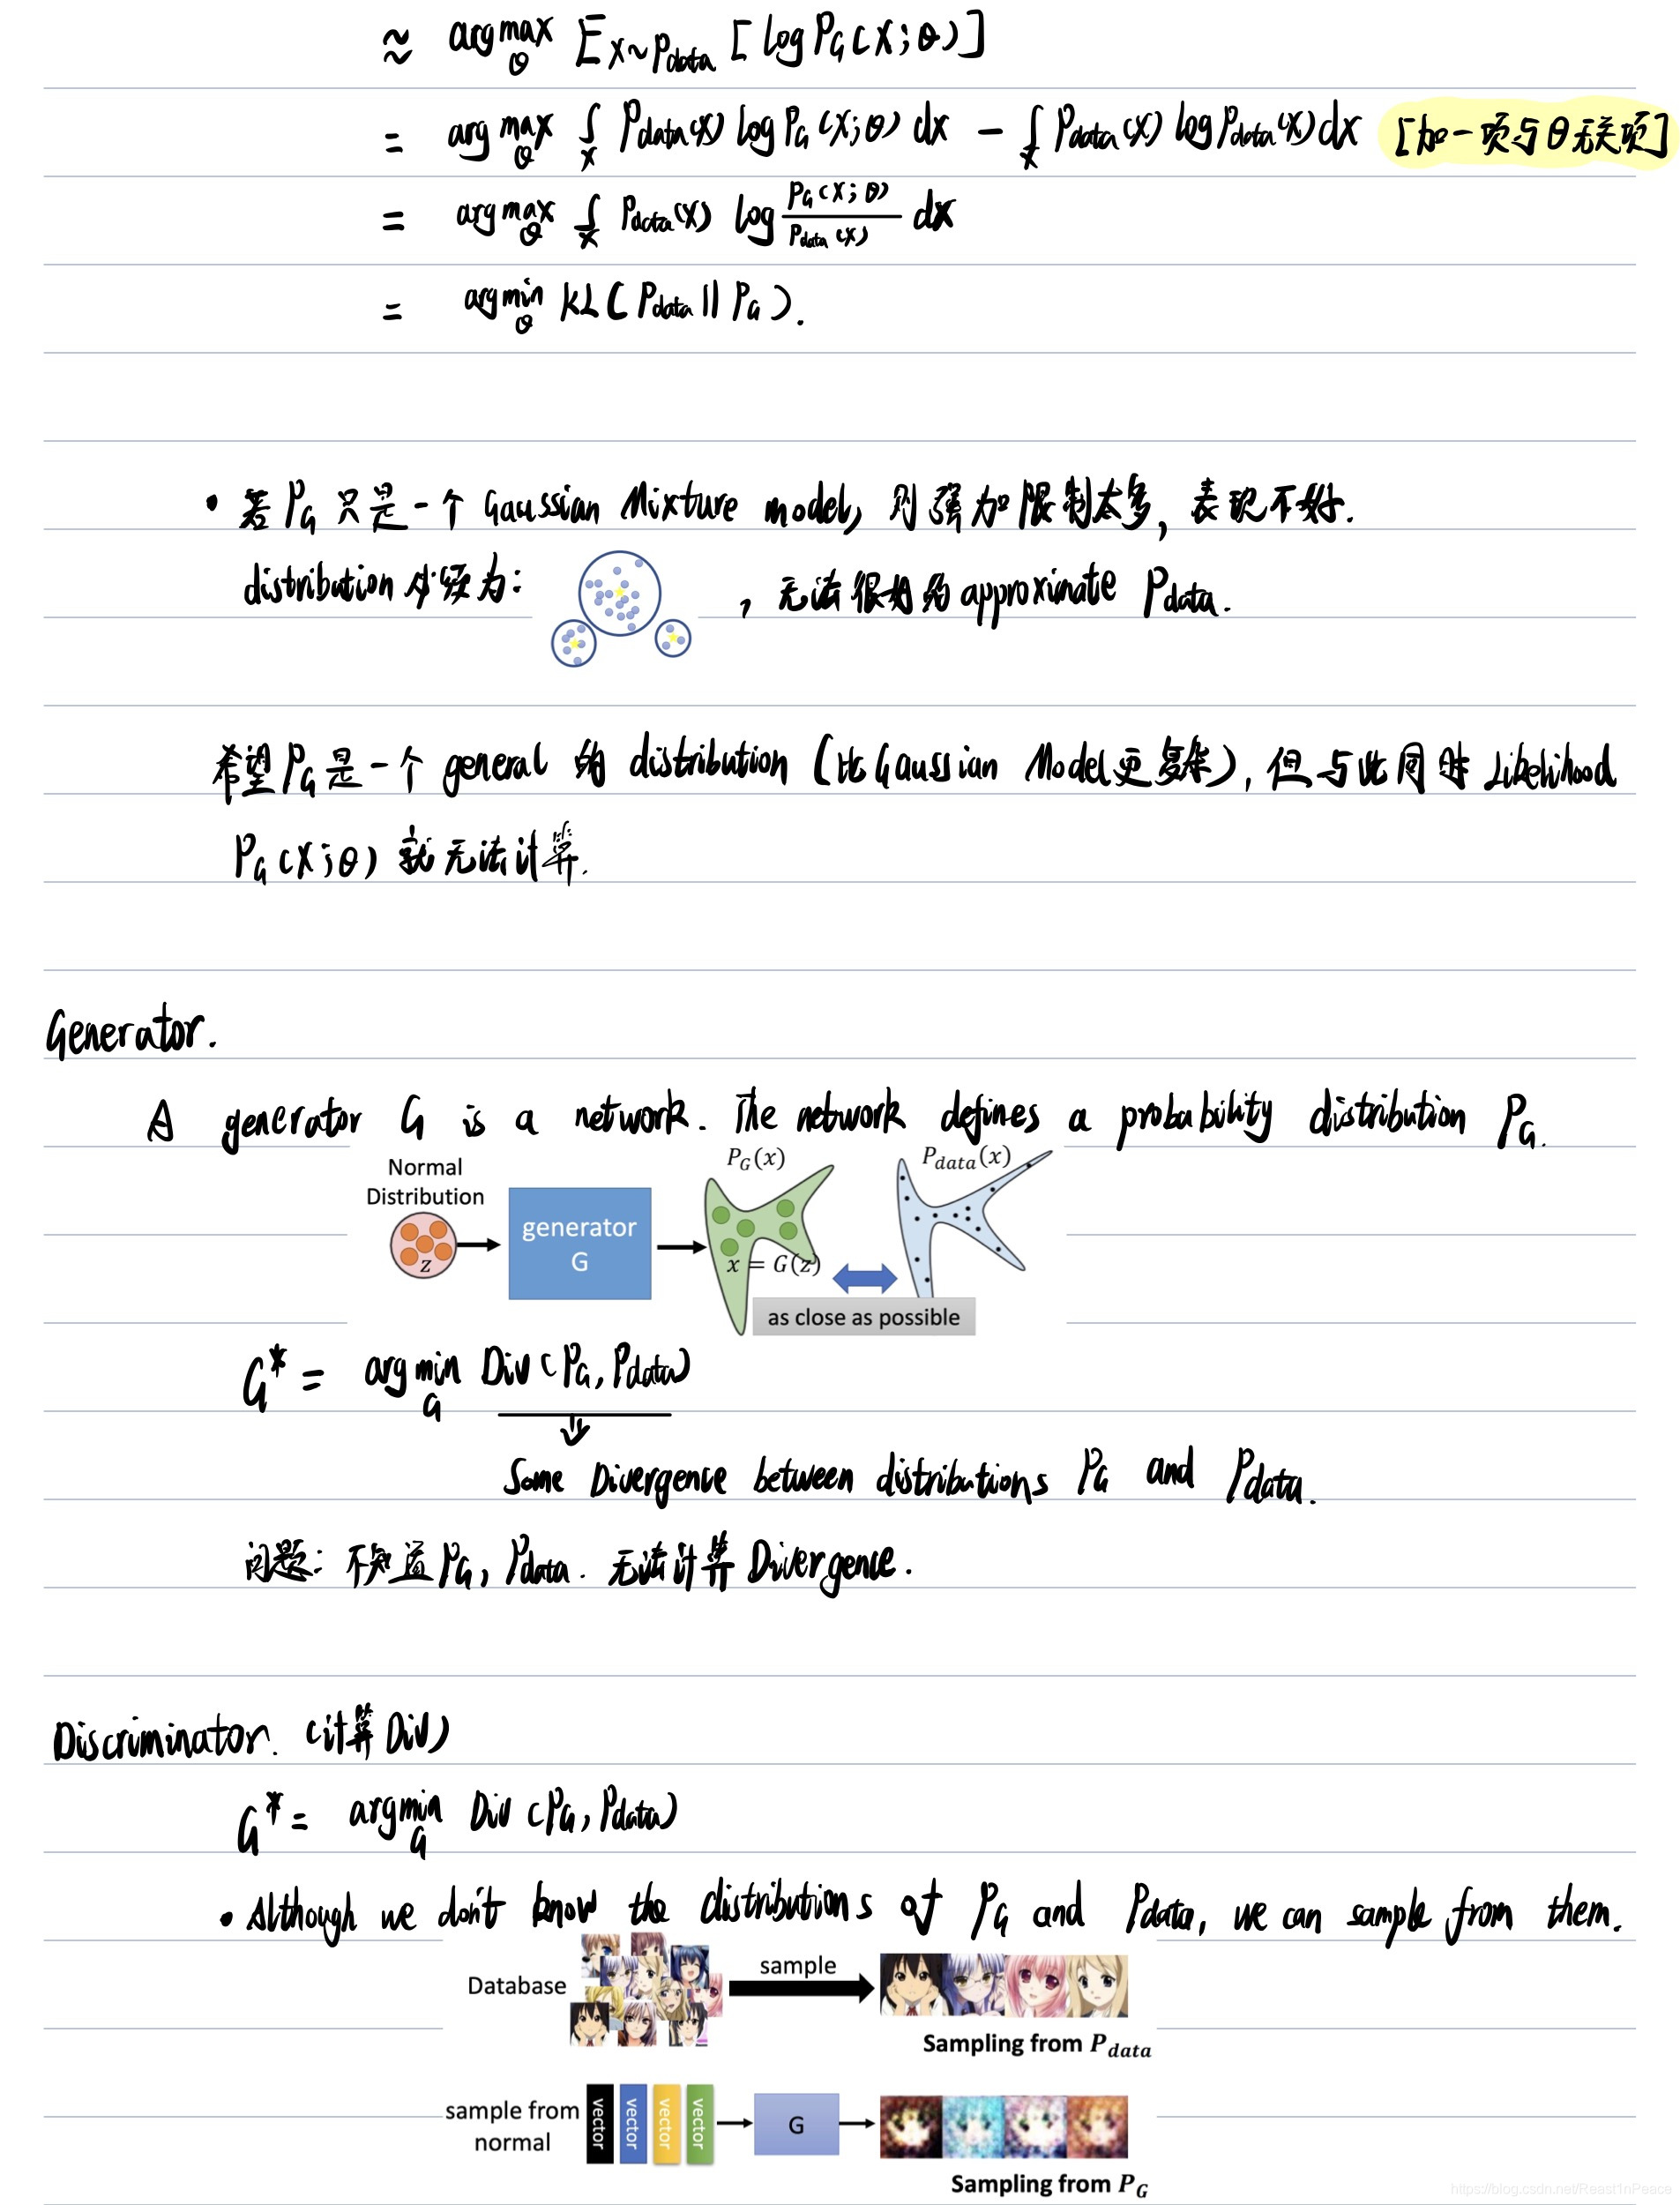 ≈ arg max_θ E_{x~Pdata} [log P_G(x;θ)]
= arg max_θ ∫_x Pdata(x) log P_G(x;θ) dx − ∫_x Pdata(x) log Pdata(x) dx [加一项与θ无关项]
= arg max_θ ∫_x Pdata(x) log P_G(x;θ)/Pdata(x) dx
= arg min_θ KL(Pdata || P_G).
• 若P_G只是一个Gaussian Mixture model, 则强加限制太多, 表现不好.
distribution必须为: , 无法很好的approximate Pdata.
希望P_G是一个general的distribution (比Gaussian Model更复杂), 但与此同时Likelihood
P_G(x;θ) 就无法计算.
Generator.
A generator G is a network. The network defines a probability distribution P_G.
Normal Distribution
z
generator G
P_G(x)
x = G(z)
P_data(x)
as close as possible
G* = arg min_G Div(P_G, Pdata)
Some Divergence between distributions P_G and Pdata.
问题: 不知道P_G, Pdata. 无法计算Divergence.
Discriminator. (计算Div)
G* = arg min_G Div(P_G, Pdata)
• Although we don't know the distributions of P_G and Pdata, we can sample from them.
Database
sample
Sampling from P_data
sample from normal
vector vector vector vector
G
Sampling from P_G
https://blog.csdn.net/Reast1nPeace